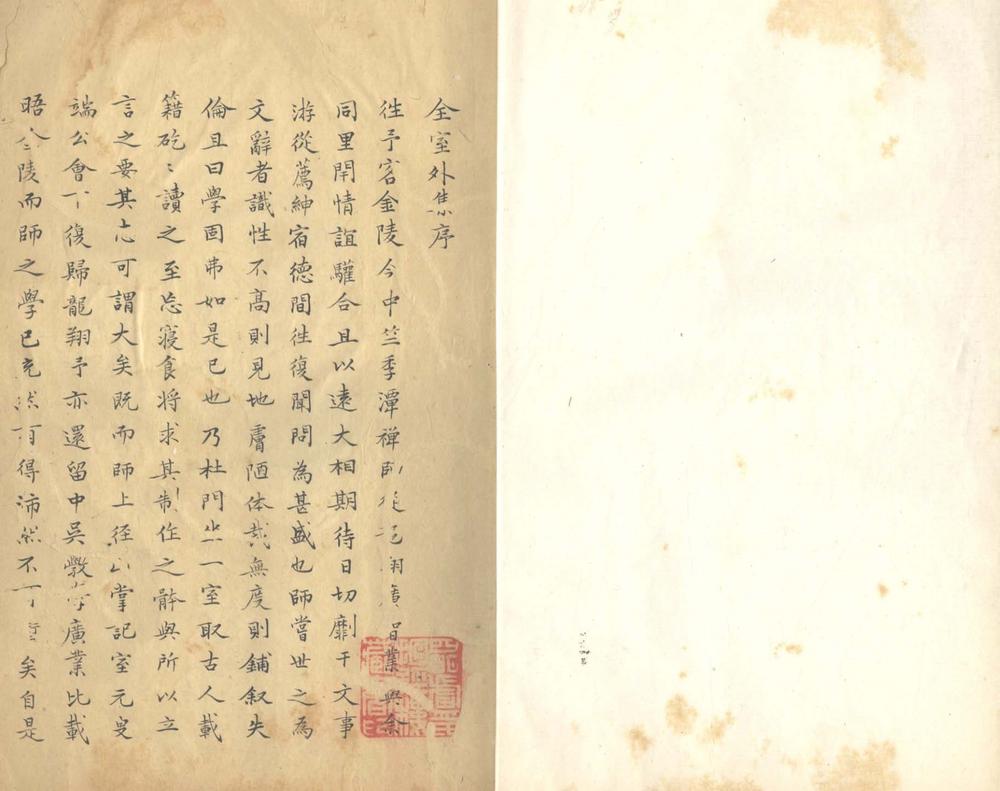 全室外集序
徃予客金陵今中竺季潭禅師從龍翔廣習業與余
同里閈情誼驩合且以逺大相期待日切劘于文事
游從薦紳宿德間徃復聞問為甚盛也師嘗世之為
文辭者識性不髙則見地膚陋体裁無度則鋪叙失
倫且曰學固弗如是已也乃杜門坐一室取古人載
籍矻〻讀之至忘寝食将求其制作之骵與所以立
言之要其志可謂大矣既而師上径山掌記室元叟
端公會下復歸龍翔予亦還留中吳斆學廣業比載
晤金陵而師之學已充然有得沛然不可量矣自是